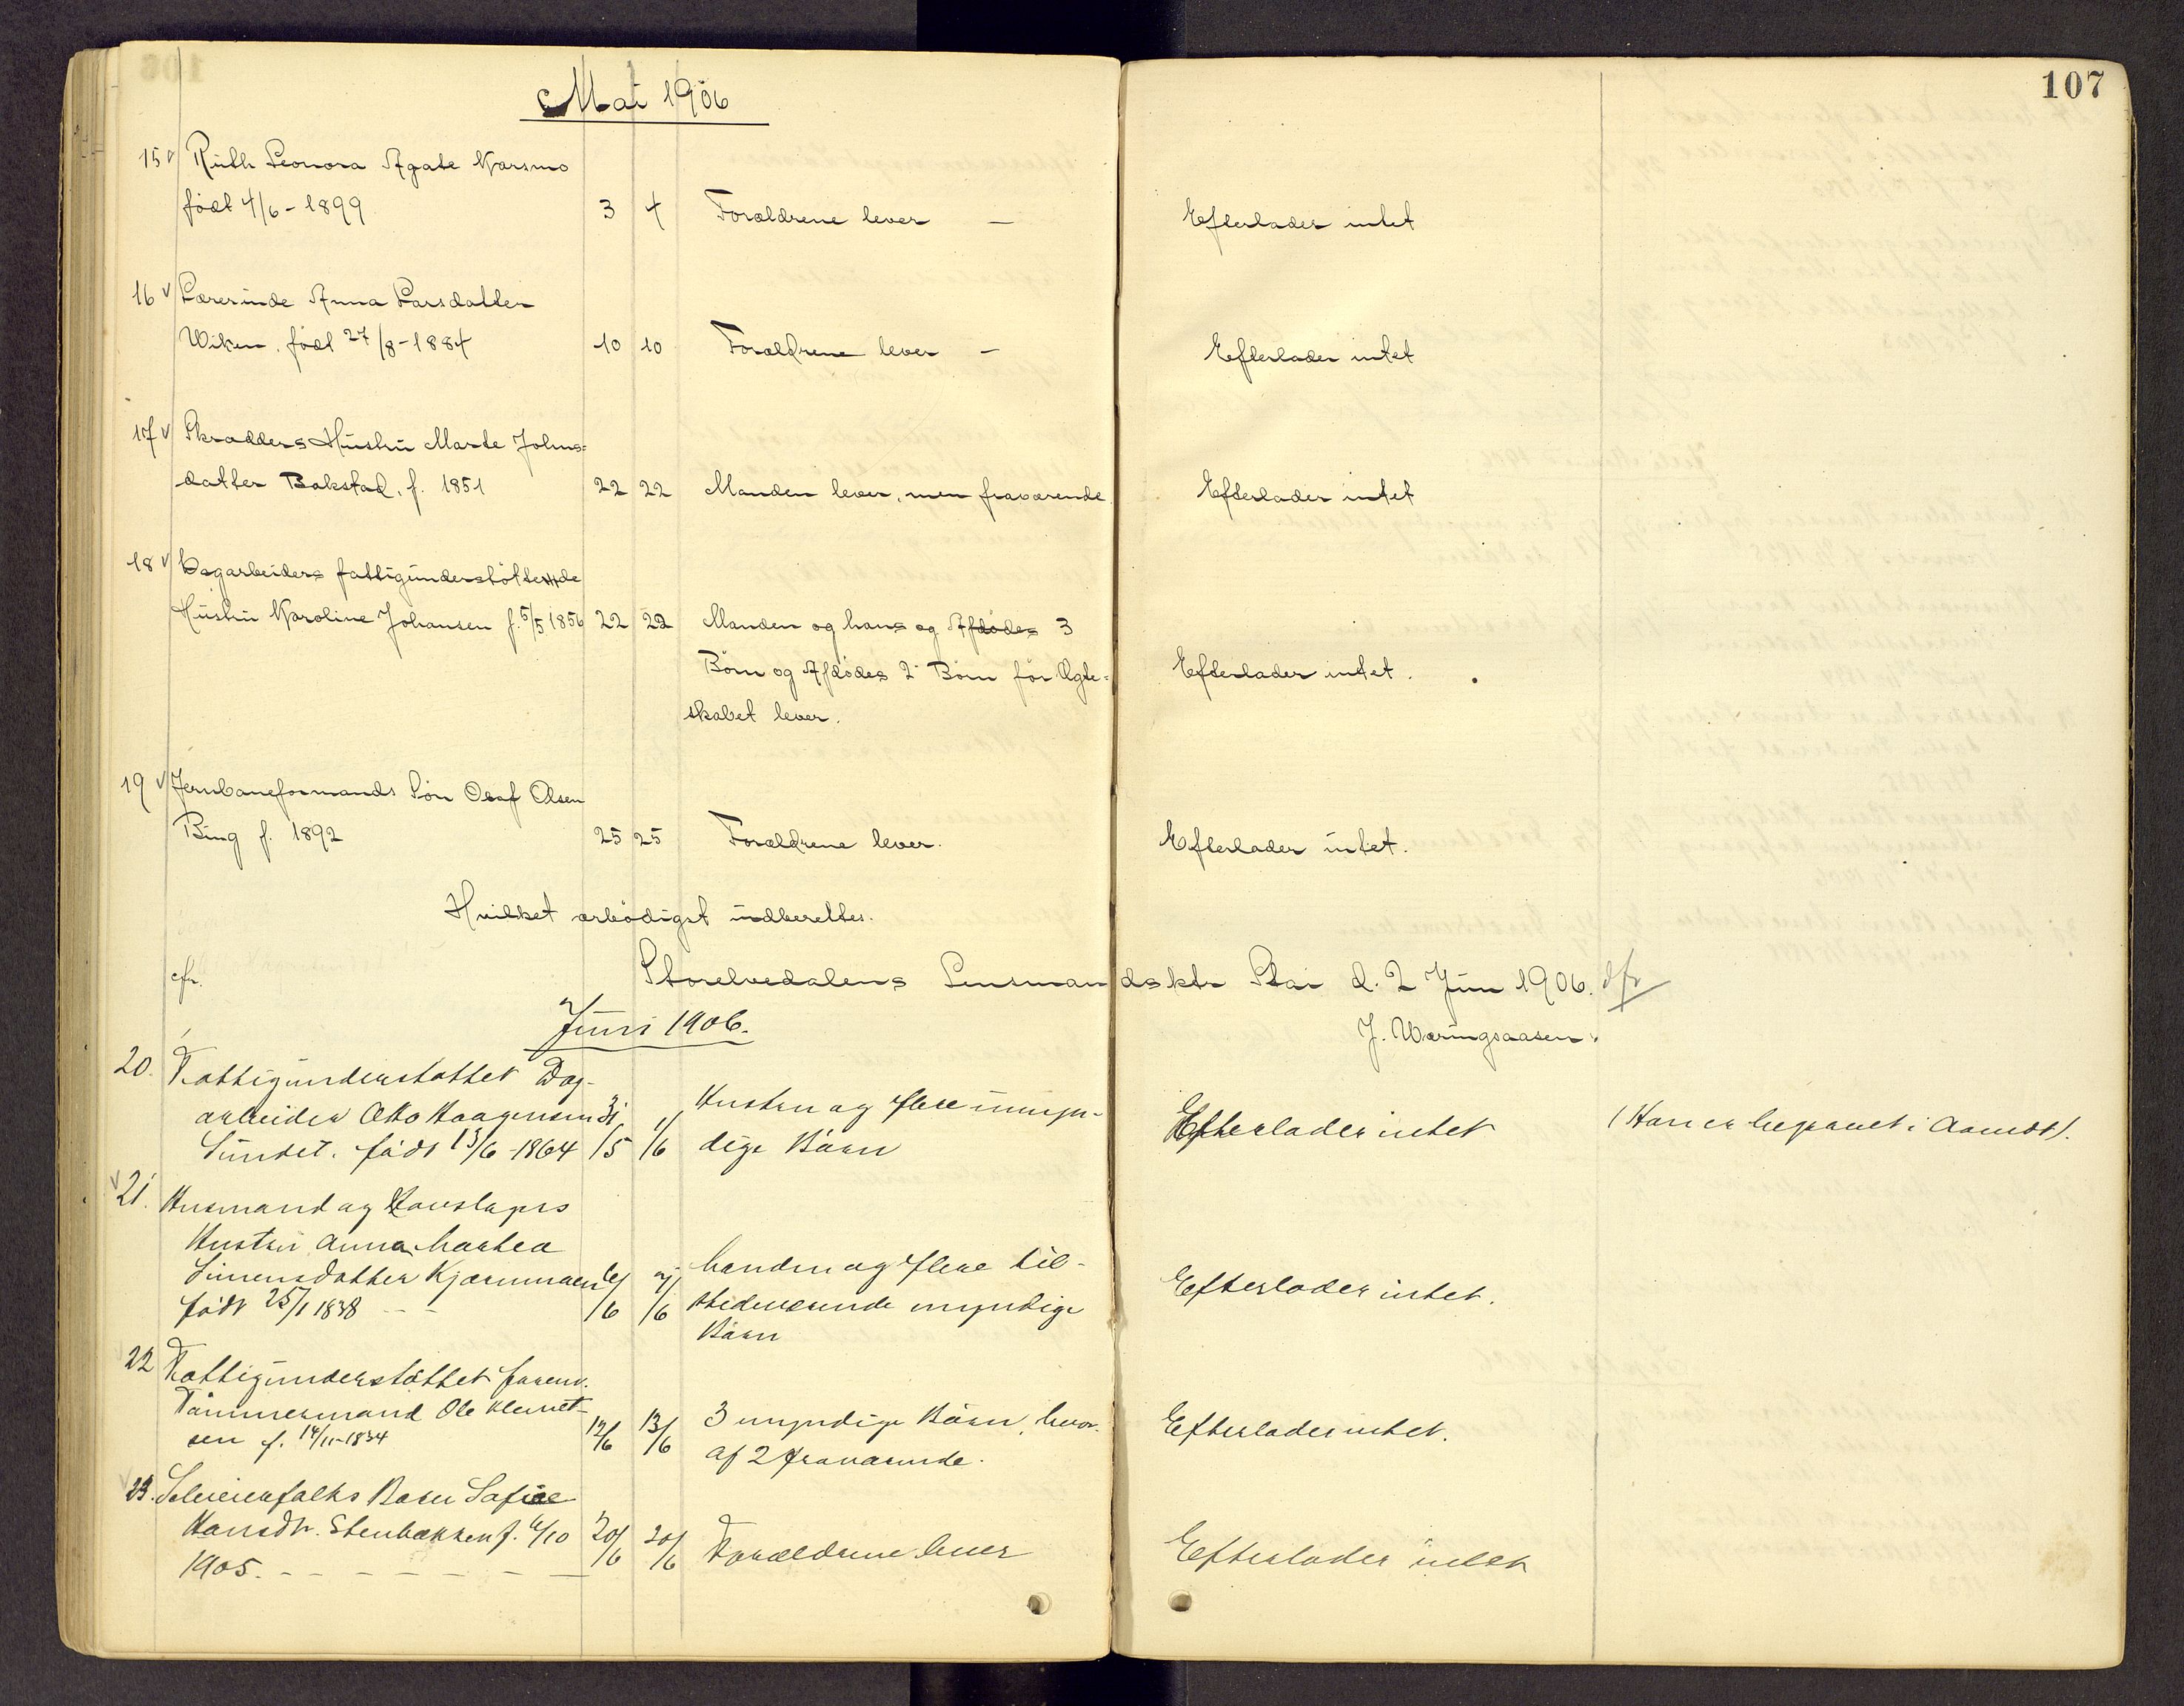 107
Mai 1906
15 Ruth Leonora Agate Karsmo
født 4/6 - 1899 3 4 Forældrene lever — Efterlader intet
16 Lærerinde Anna Larsdatter
Wiken. født 27/8 - 1884 10 10 Forældrene lever — Efterlader intet
17 Skrædders Hustru Marte Johns=
datter Bakstad, f. 1851 22 22 Manden lever, men fraværende Efterlader intet
18 Dagarbeiders fattigunderstøttende
Hustru Karoline Johansen f. 5/5 1856 22 22 Manden og hans og Afdødes 3
Børn og Afdødes 2 Børn før Ægte= Efterlader intet.
skabet lever.
19 Jernbaneformands Søn Olaf Olsen
Bing f. 1892 25 25 Forældrene lever. Efterlader intet.
Hvilket ærbødigst indberettes.
cfr. Storelvedalens Lensmandsktr Stai d. 2 Juni 1906. dfr
J. Wæringsaasen.
Juni 1906.
20. Fattigunderstøttet Dag-
arbeider Otto Haagensen 31 1/ Hustru og flere umyn- Efterlader intet (Han er begravet i Aamot).
Sundet. født 13/6 - 1864 /5 /6 dige Børn
21. Husmand og
Hustru Anna Marthea
Simensdatter Kjærnmoen 6/ 7/ Manden og flere til- Efterlader intet.
født 25/1 1838 - - /6 /6 stedeværende myndige
Børn
22 Fattigunderstøttet forenv.
Tømmermand Ole Klemet-
sen f. 14/11-1834 12/6 13/6 3 myndige Børn, hvor- Efterlader intet.
af 2 fraværende.
23. Seleierfolks Barn Sofie
Hansdtr. Stenbækken f. 6/10 20/6 20/6 Forældrene lever Efterlader intet
1905. - - - - - - -